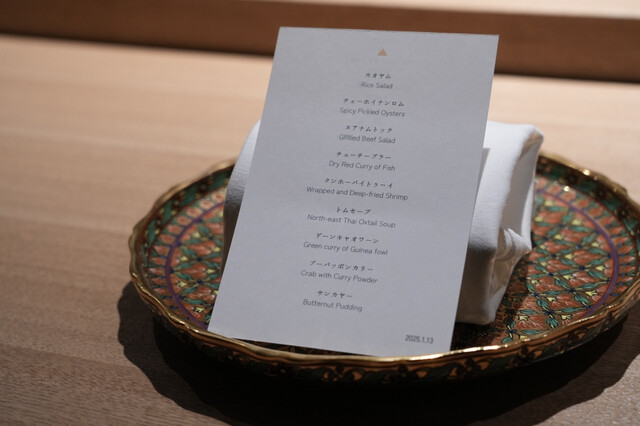 カオヤム
Rice Salad
チェーホイナンロム
Spicy Pickled Oysters
ヌアナムトック
Grilled Beef Salad
チューチープラー
Dry Red Curry of Fish
クンホーバイトゥーイ
Wrapped and Deep-fried Shrimp
トムセープ
North-east Thai Oxtail Soup
ゲーンキャオワーン
Green curry of Guinea fowl
プーパッポンカリー
Crab with Curry Powder
サンカヤー
Butternut Pudding
2025.1.13